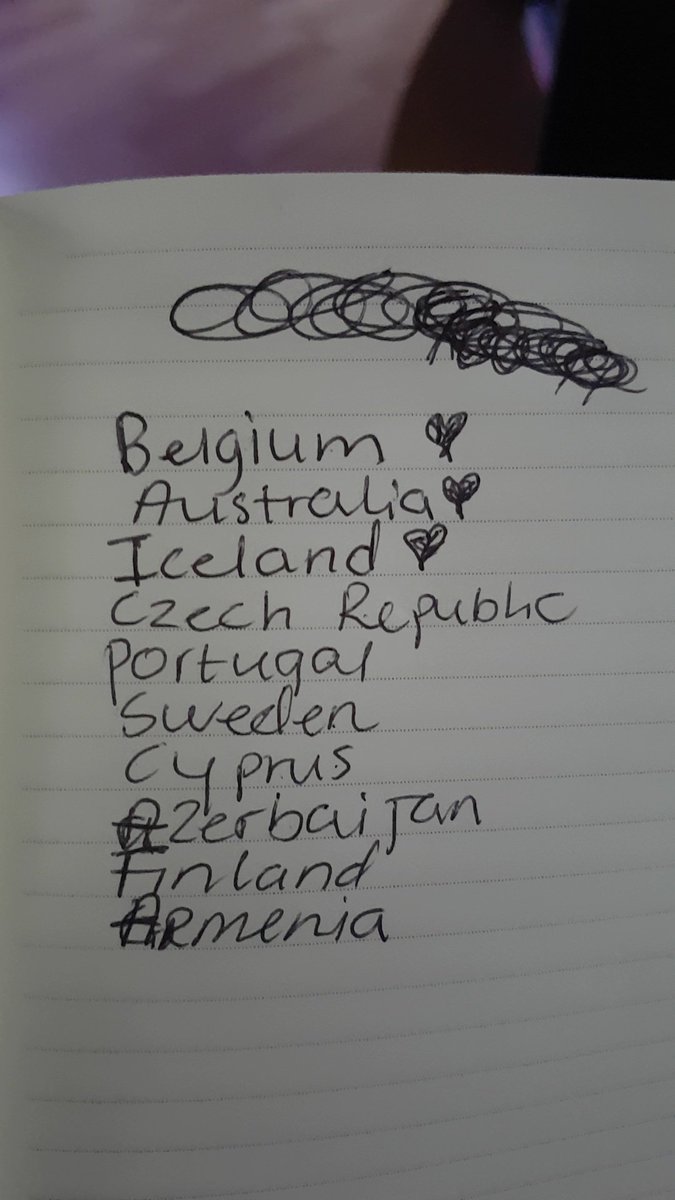 Belgium
Australia
Iceland
Czech Republic
Portugal
Sweden
Cyprus
Azerbaijan
Finland
Armenia